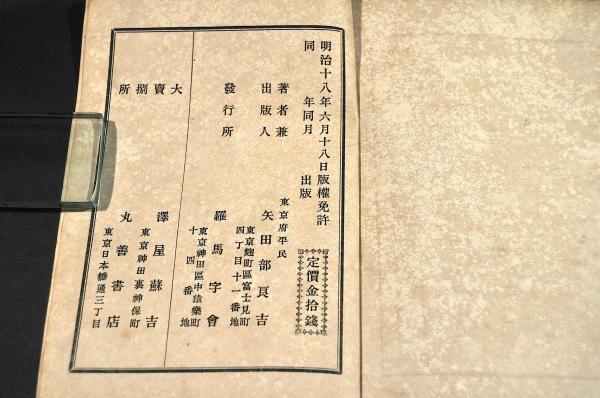 明治十八年六月十八日版權免許
同年同月出版
定價金拾錢
著者兼
出版人
東京府平民
矢田部良吉
東京麴町區富士見町
四丁目十一番地
發行所
羅馬字會
東京神田區中猿樂町
十四番地
大賣捌所
澤屋蘇吉
東京神田裏神保町
丸善書店
東京日本橋通三丁目